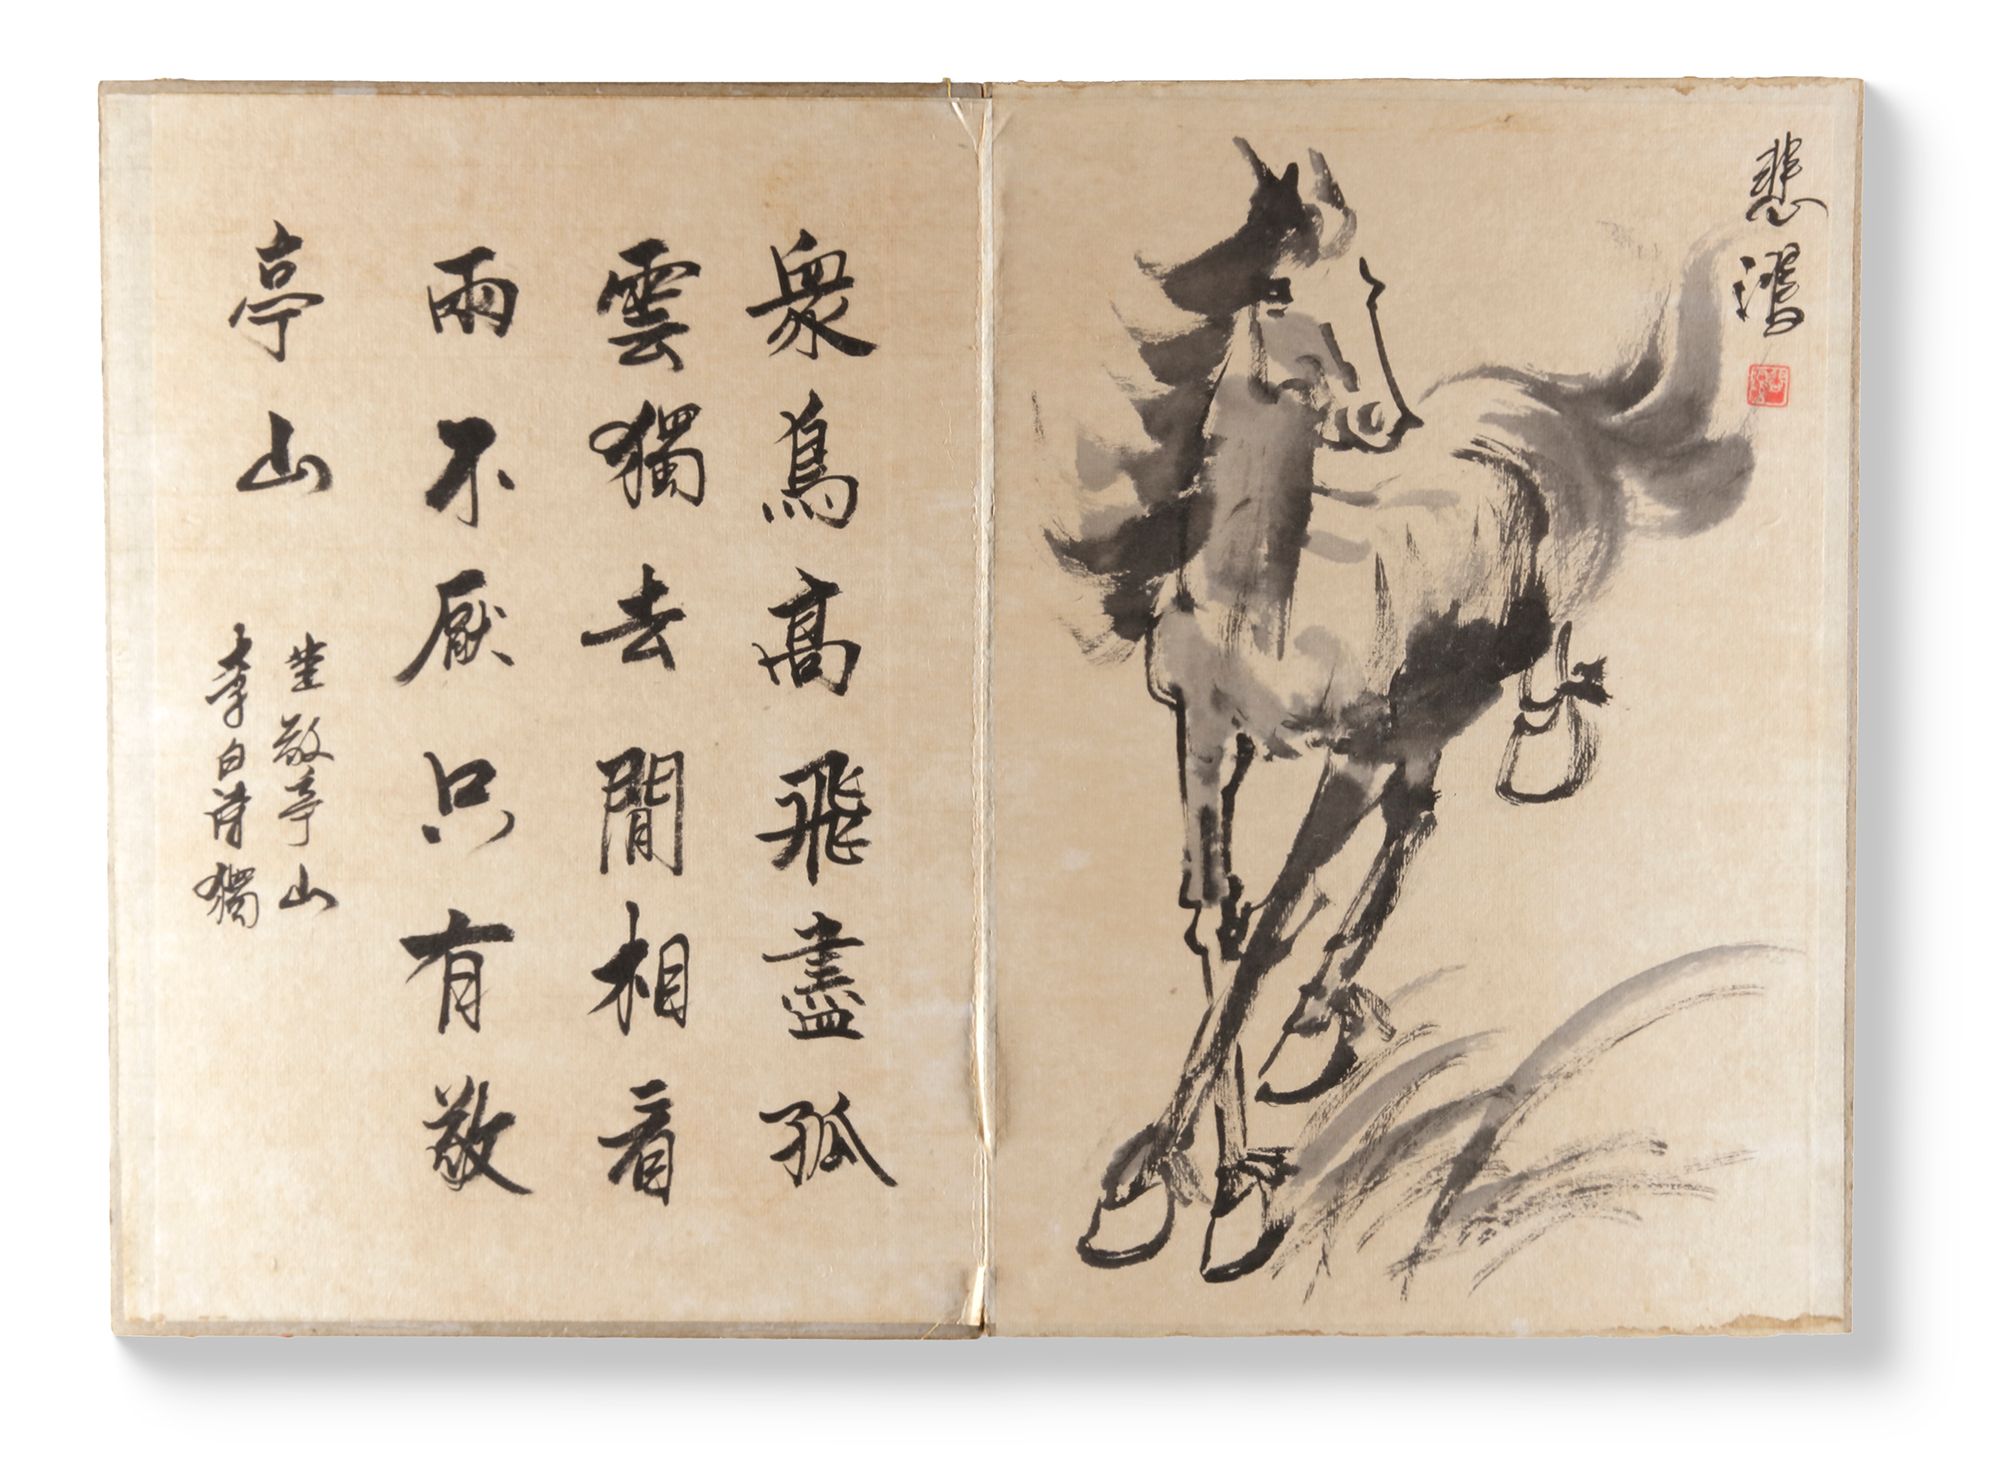 悲鴻
衆鳥高飛盡孤
雲獨去閒相看
兩不厭只有敬
亭山
坐敬亭山
李白詩獨